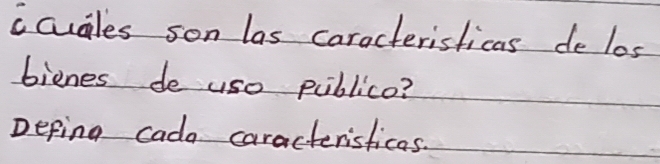 ¿cuáles son las caracteristicas de los
bienes de uso público?
Defina cada caracteristicas.